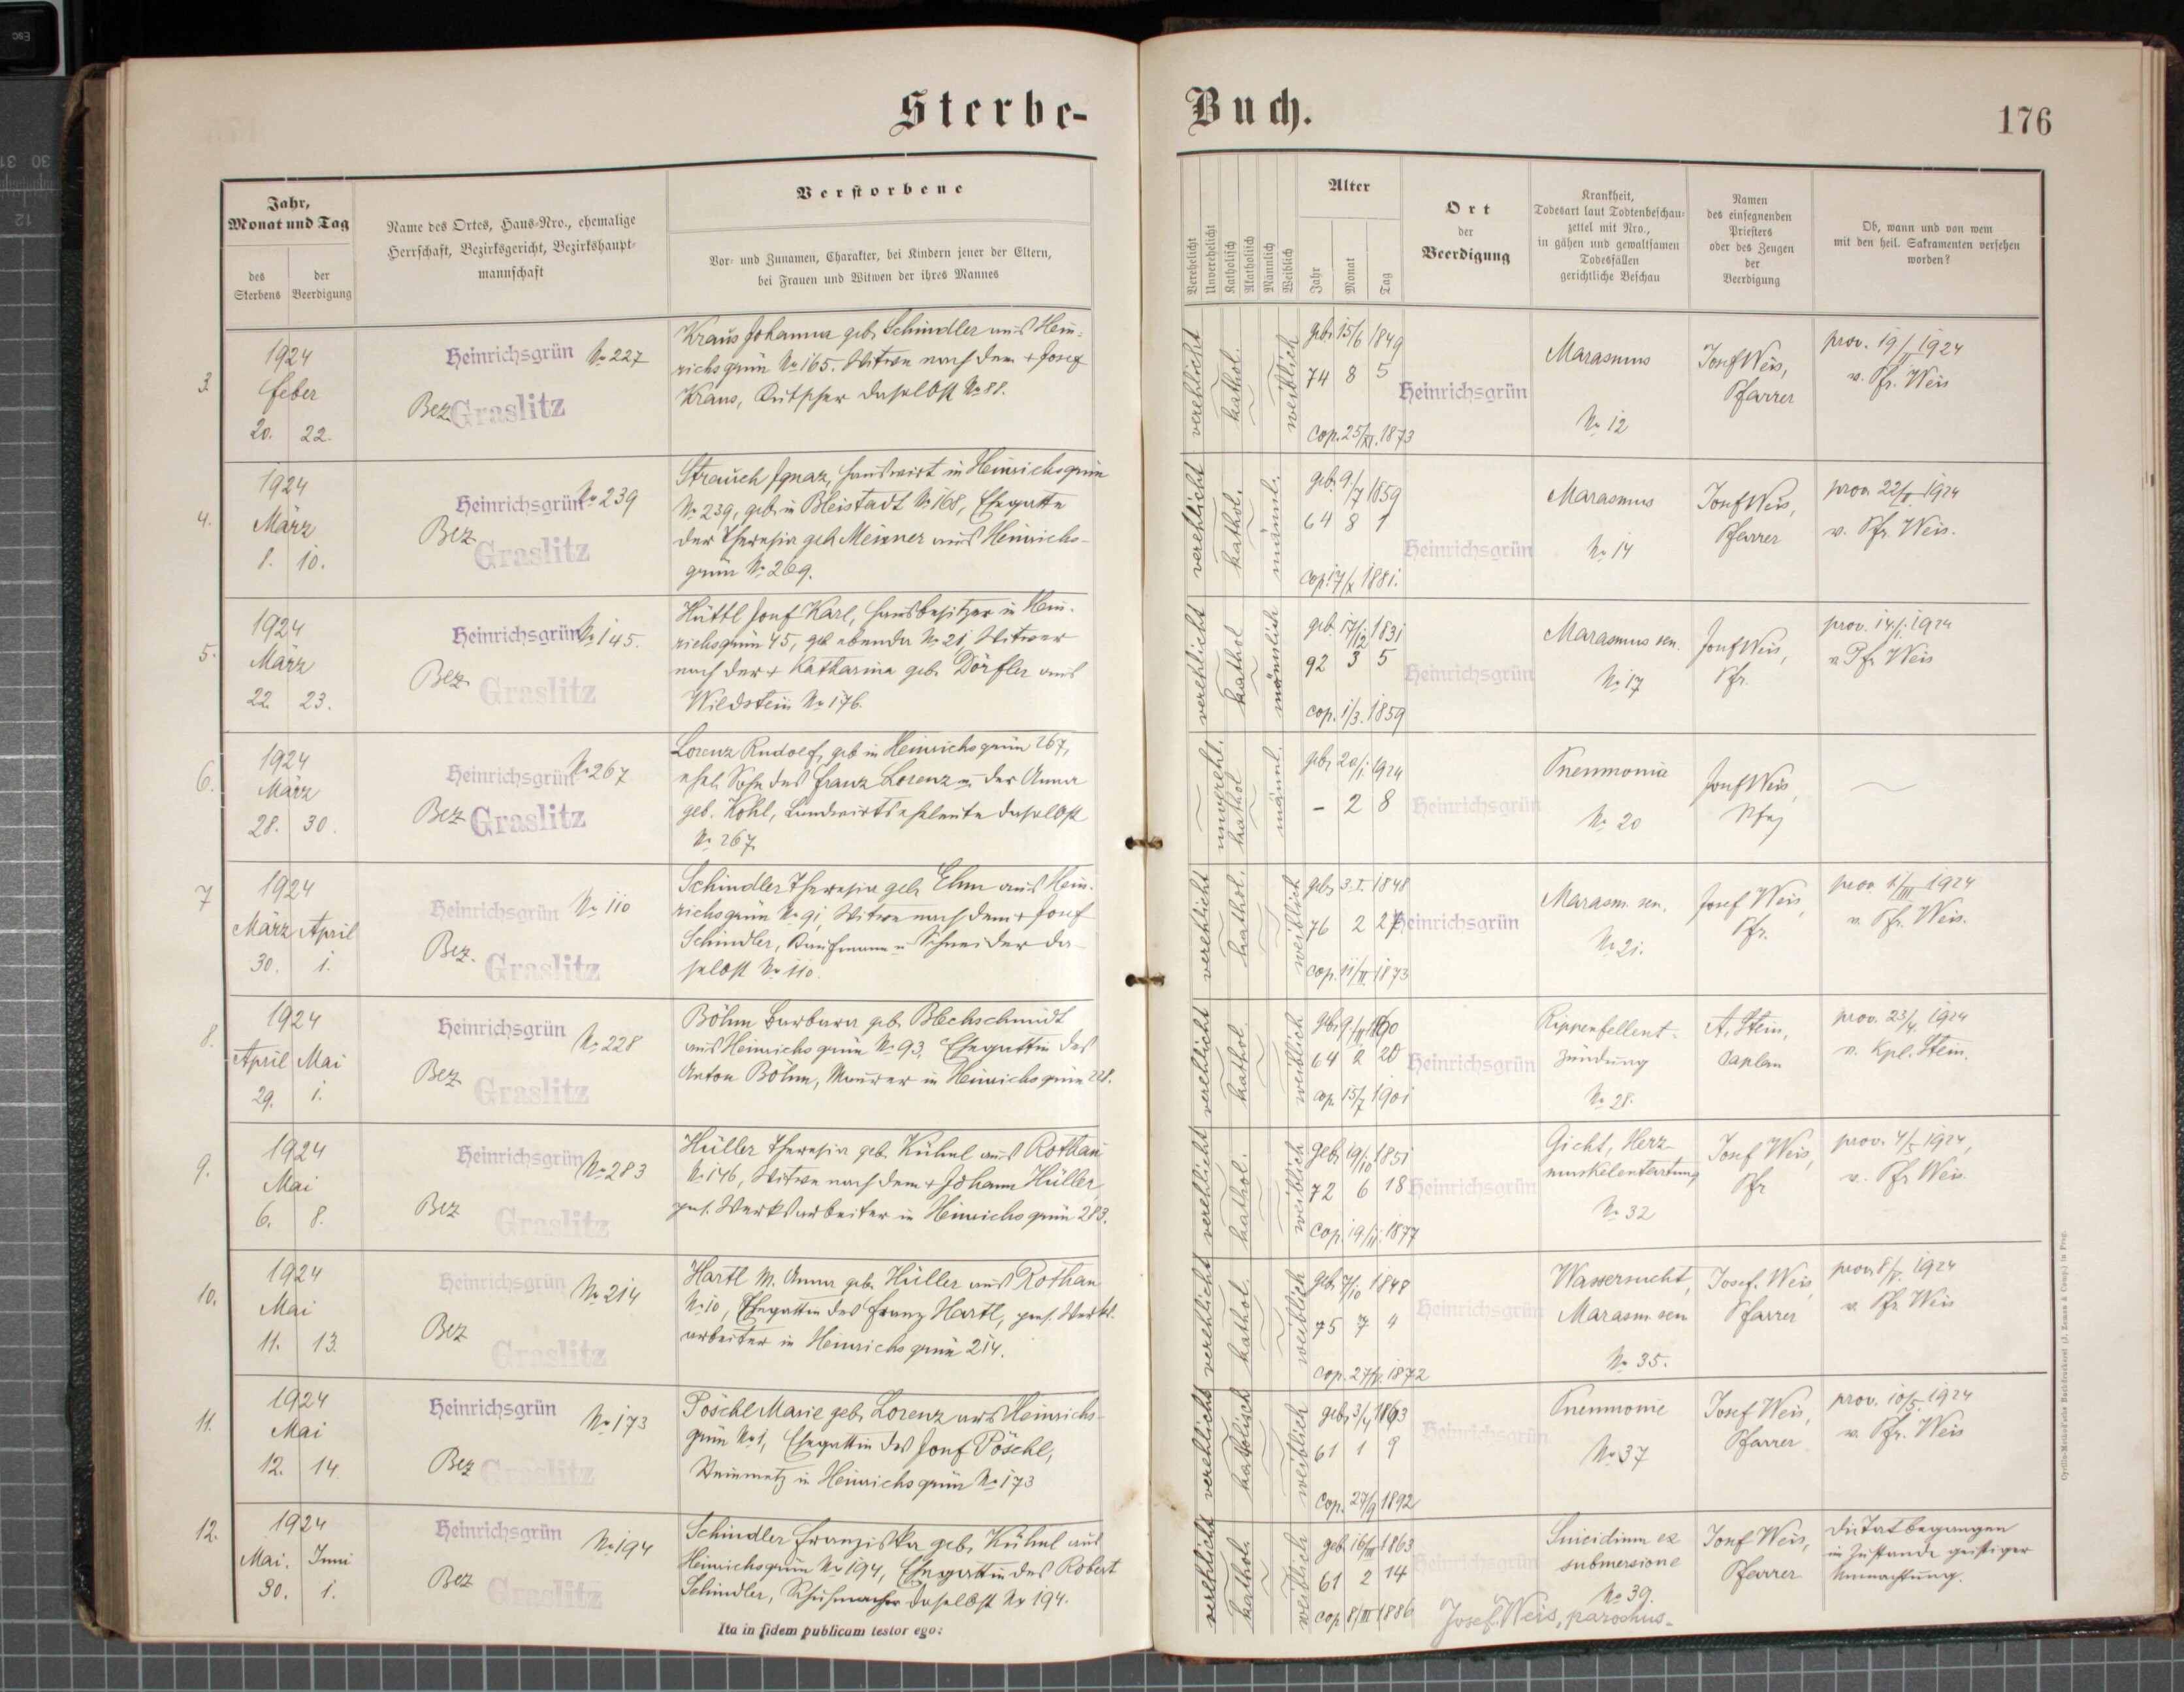 Sterbe-
Buch.
176
Jahr,
Monat und Tag
des
Sterbens
der
Beerdigung
Name des Ortes, Haus-Nro., ehemalige
Herrschaft, Bezirksgericht, Bezirkshaupt-
mannschaft
Verstorbene
Vor- und Zunamen, Charakter, bei Kindern jener der Eltern,
bei Frauen und Witwen der ihres Mannes
Verehelicht
Unverehelicht
Katholisch
Akatholisch
Männlich
Weiblich
Alter
Jahr
Monat
Tag
Ort
der
Beerdigung
Krankheit,
Todesart laut Todtenbeschau-
zettel mit Nro.,
in gähen und gewaltsamen
Todesfällen
gerichtliche Beschau
Namen
des einsegnenden
Priesters
oder des Zeugen
der
Beerdigung
Ob, wann und von wem
mit den heil. Sakramenten versehen
worden?
3.
1924
Feber
20. 22.
Heinrichsgrün No 227
Bez Graslitz
Kraus Johanna geb. Schindler aus Hein-
richsgrün No 165. Witwe nach dem + Josef
Kraus, Kutscher daselbst No 88.
verehlicht
kathol.
weiblich
geb. 15/6 1849
74 8 5
cop. 25/XI. 1873
Heinrichsgrün
Marasmus
No 12
Josef Weis,
Pfarrer
prov. 19/II 1924
v. Pfr. Weis
4.
1924
März
8. 10.
Heinrichsgrün No 239
Bez Graslitz
Strauch Ignaz, Hauswirt in Heinrichsgrün
No 239, geb. in Bleistadt No 168, Ehegatte
der Theresia geb. Meixner aus Heinrichs-
grün No 269.
verehlicht
kathol.
männl.
geb. 9/7 1859
64 8 1
cop. 17/X 1881.
Heinrichsgrün
Marasmus
No 14
Josef Weis,
Pfarrer
prov. 22/ 1924
v. Pfr. Weis.
5.
1924
März
22. 23.
Heinrichsgrün No 145.
Bez. Graslitz
Hüttl Josef Karl, Hausbesitzer in Hein-
richsgrün 45, geb. ebenda No 21, Witwer
nach der + Katharina geb. Dörfler aus
Wildstein No 176.
verehlicht
kathol
männlich
geb. 17/12 1831
92 3 5
cop. 1/3. 1859
Heinrichsgrün
Marasmus sen.
No 17
Josef Weis,
Pfr.
prov. 14/1. 1924
v. Pfr. Weis
6.
1924
März
28. 30.
Heinrichsgrün No 267
Bez Graslitz
Lorenz Rudolf, geb. in Heinrichsgrün 267,
ehel. Sohn des Franz Lorenz u. der Anna
geb. Köhl, Landwirtseheleute daselbst
No 267.
unvereht.
kathol
männl.
geb. 20/1. 1924
- 2 8
Heinrichsgrün
Pneumonia
No 20
Josef Weis,
7
1924
März April
30. 1.
Heinrichsgrün No 110
Bez. Graslitz
Schindler Theresia geb. Ehm aus Hein-
richsgrün No 91, Witwe nach dem + Josef
Schindler, Kaufmann u. Schneider da-
selbst No 110.
verehlicht
kathol.
weiblich
geb. 3. I. 1848
76 2 27
cop. 11/II. 1873
Heinrichsgrün
Marasm. sen.
No 21.
Josef Weis,
Pfr.
prov. 1/III 1924
v. Pfr. Weis.
8.
1924
April Mai
29. 1.
Heinrichsgrün No 228
Bez Graslitz
Böhm Barbara geb. Blechschmidt
aus Heinrichsgrün No 93. Ehegattin des
Anton Böhm, Maurer in Heinrichsgrün 228.
verehlicht
kathol
weiblich
geb. 9/II 1860
64 2 20
cop. 15/7 1901
Heinrichsgrün
Rippenfellent-
zündung
No 28.
A. Stein,
Caplan
prov. 23/4. 1924
v. Kpl. Stein.
9.
1924
Mai
6. 8.
Heinrichsgrün No 283
Bez Graslitz
Hüller Theresia geb. Kühnl aus Rothau
No 146, Witwe nach dem + Johann Hüller,
pens. Werksarbeiter in Heinrichsgrün 283.
verehlicht
kathol.
weiblich
geb. 19/10 1851
72 6 18
cop. 19/11. 1877
Heinrichsgrün
Gicht, Herz-
muskelentartung
No 32
Josef Weis,
Pfr
prov. 4/5 1924,
v. Pfr Weis.
10.
1924
Mai
11. 13.
Heinrichsgrün No 214
Bez Graslitz
Hartl M. Anna geb. Hüller aus Rothau
No 10, Ehegattin des Franz Hartl, pens. Werks-
arbeiter in Heinrichsgrün 214.
verehlicht
kathol.
weiblich
geb. 7/10 1848
75 7 4
cop. 27/ 1872
Heinrichsgrün
Wassersucht,
Marasm. sen
No 35.
Josef Weis,
Pfarrer
prov. 8/V. 1924
v. Pfr Weis
11.
1924
Mai
12. 14.
Heinrichsgrün No 173
Bez Graslitz
Pöschl Marie geb. Lorenz aus Heinrichs-
grün No 1, Ehegattin des Josef Pöschl,
Steinmetz in Heinrichsgrün No 173
verehlicht
katholisch
weiblich
geb. 3/4 1863
61 1 9
cop. 27/9 1892
Heinrichsgrün
Pneumonie
No 37
Josef Weis,
Pfarrer
prov. 10/5. 1924
v. Pfr. Weis
12.
1924
Mai. Juni
30. 1.
Heinrichsgrün No 194
Bez Graslitz
Schindler Franziska geb. Kühnl aus
Heinrichsgrün No 194, Ehegattin des Robert
Schindler, Schuhmacher daselbst No 194.
verehlicht
kathol.
weiblich
geb. 16/III 1863
61 2 14
cop 8/III 1886
Heinrichsgrün
Suicidium ex
submersione
No 39.
Josef Weis,
Pfarrer
Die Tat begangen
im Zustande geistiger
Umnachtung.
Ita in fidem publicam testor ego:
Josef Weis, parochus.